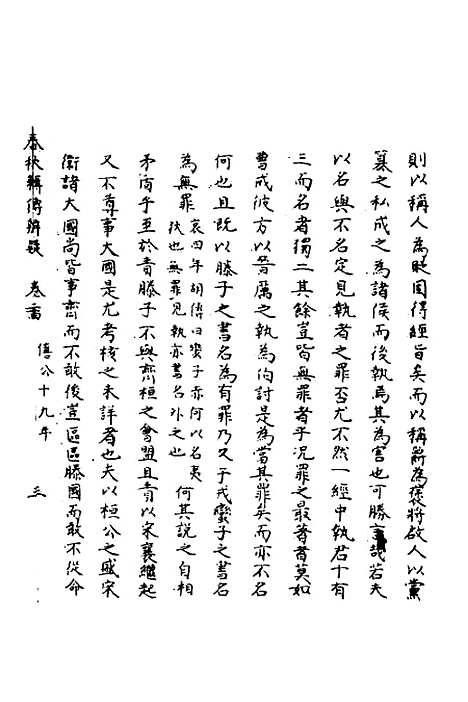 則以稱人為貶固得經旨矣而以稱爵為褒將啟人以黨
篡之私成之為諸侯而後執焉其為害也可勝言哉若夫
以名與不名定見執者之罪否尤不然一經中執君十有
三而名者獨二其餘豈皆無罪者乎況罪之最著者莫如
曹成彼方以晉厲之執為伯討是為當其罪矣而亦不名
何也且既以滕子之書名為有罪乃又于戎蠻子之書名
為無罪哀四年胡傳曰蠻子赤何以名夷狄也無罪見執亦書名外之也何其說之自相
矛盾乎至於責滕子不與齊桓之會盟且責以宋襄繼起
又不尊事大國是尤考核之未詳者也夫以桓公之盛宋
衛諸大國尚皆事齊而不敢後豈區區滕國而敢不從命
春秋輯傳辨疑 卷 僖公十九年 三